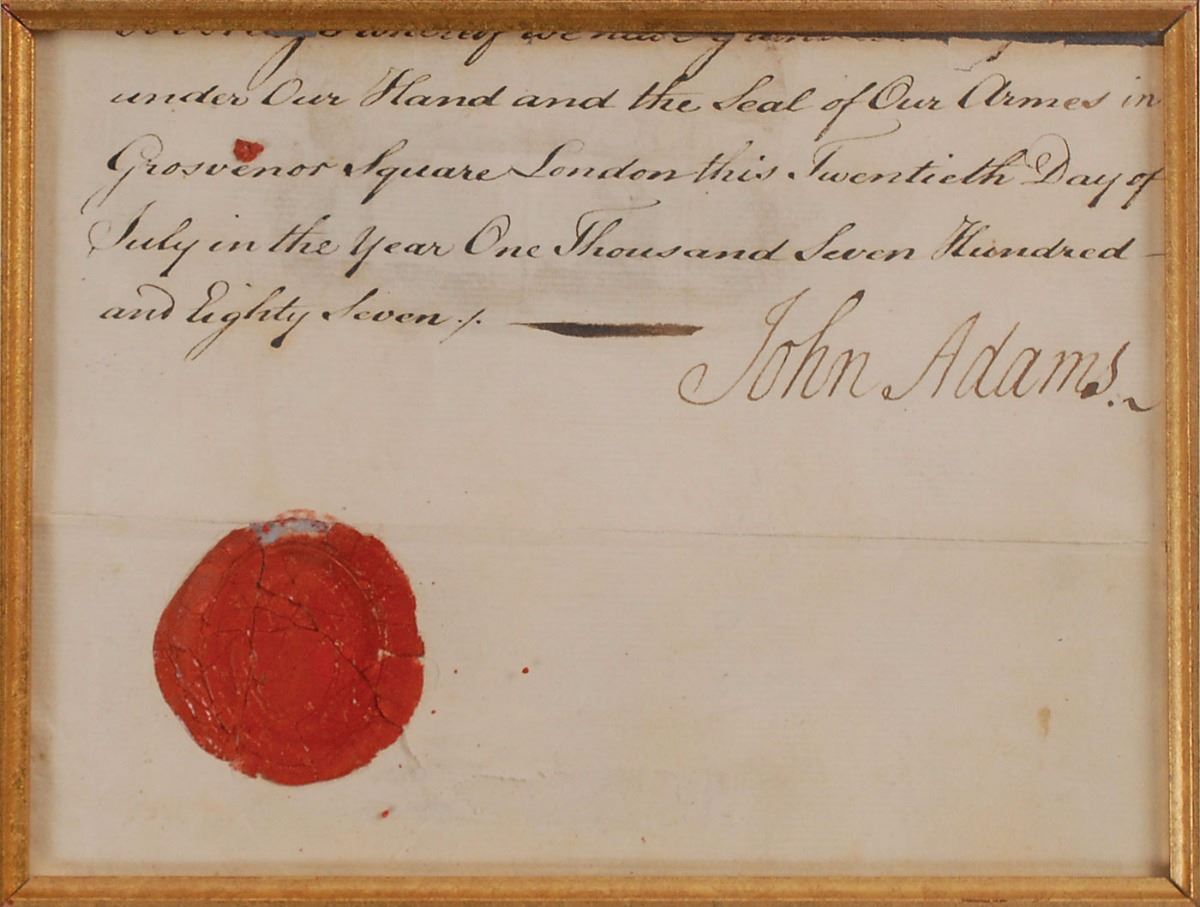 whereof we have
under Our Hand and the Seal of Our Armes in
Grosvenor Square London this Twentieth Day of
July in the Year One Thousand Seven Hundred
and Eighty Seven ./.
John Adams.